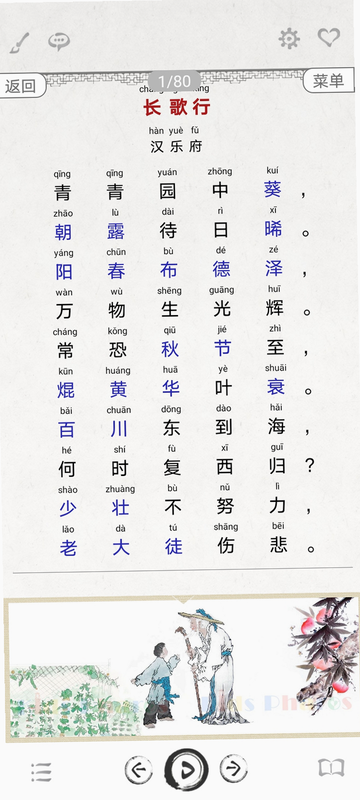 1/80
返回
菜单
长歌行
hàn yuè fǔ
汉乐府
qīng qīng yuán zhōng kuí
青青园中葵，
zhāo lù dài rì xī
朝露待日晞。
yáng chūn bù dé zé
阳春布德泽，
wàn wù shēng guāng huī
万物生光辉。
cháng kǒng qiū jié zhì
常恐秋节至，
kūn huáng huā yè shuāi
焜黄华叶衰。
bǎi chuān dōng dào hǎi
百川东到海，
hé shí fù xī guī
何时复西归？
shào zhuàng bù nǔ lì
少壮不努力，
lǎo dà tú shāng bēi
老大徒伤悲。